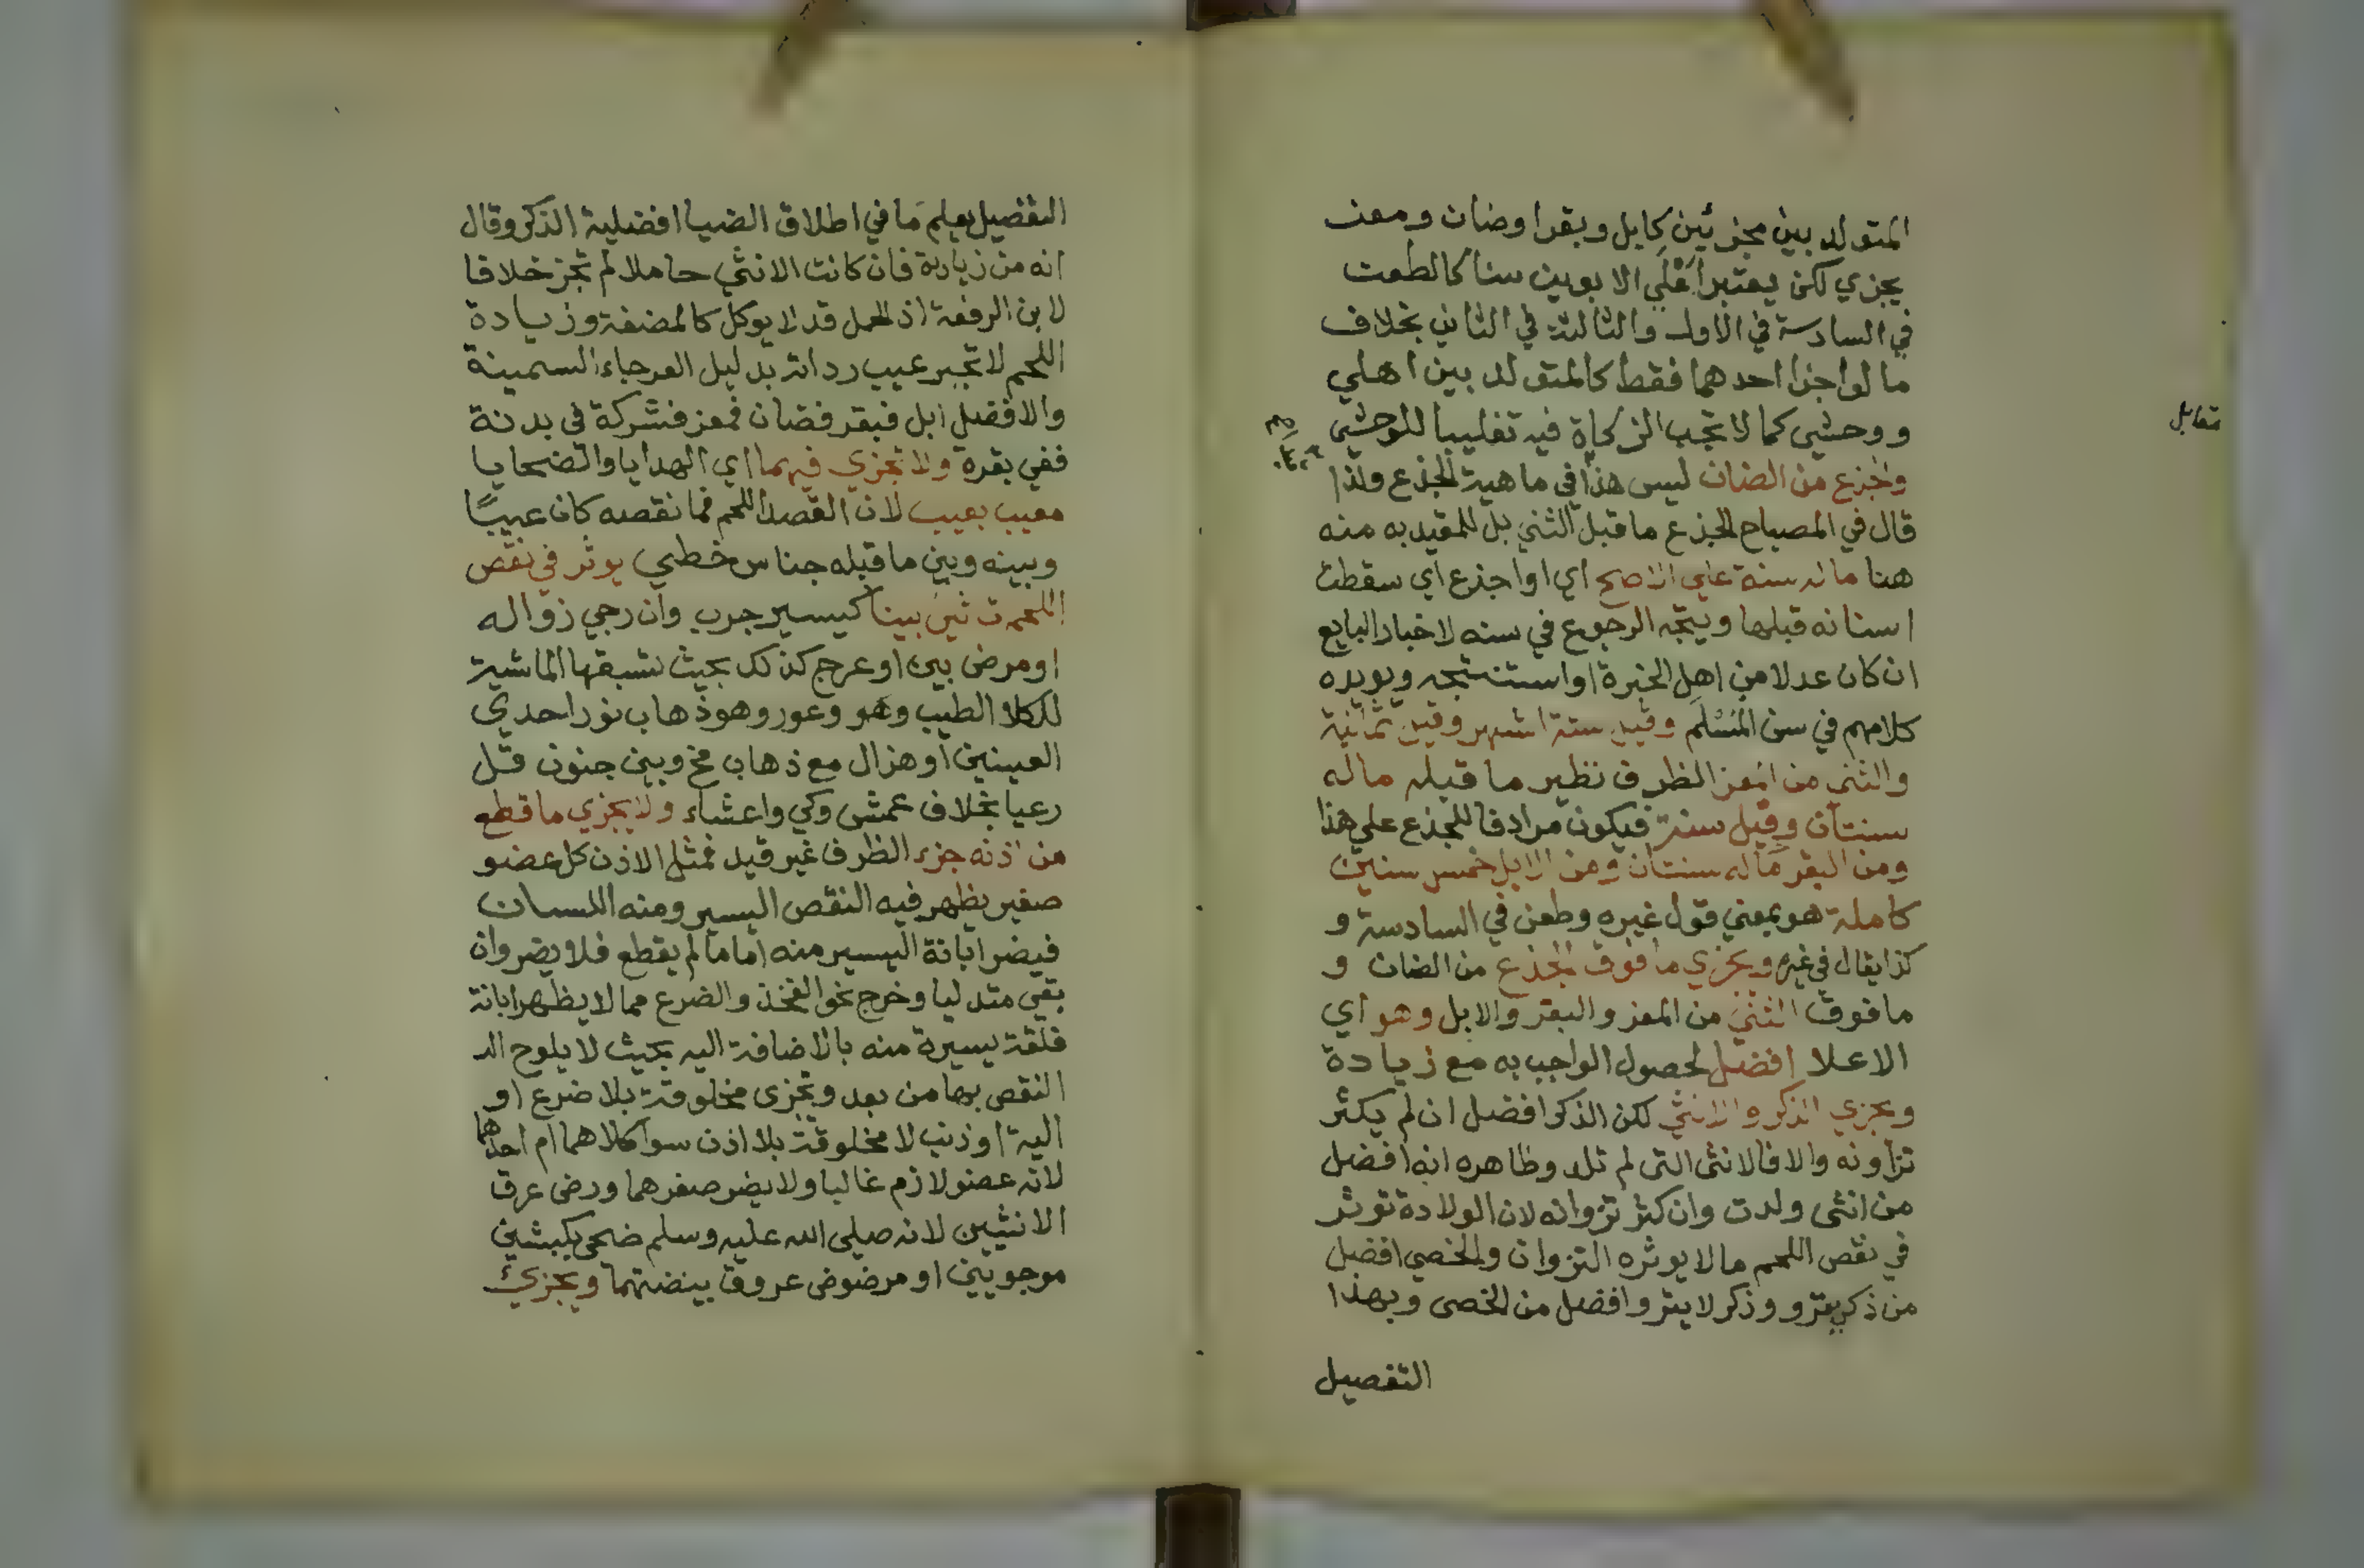 المتولد بين مجزئين كابل وبقر او ضان ومعز
يجزي لكن يعتبر اعلي الابوين سنا كالطعن
في السادسة في الاول والثالثة في الثاني بخلاف
ما لو اجزا احدهما فقط كالمتولد بين اهلي
ووحشي كما لا تجب الزكاة فيه تغليبا للوحشي
وجذع من الضان ليس هذا في ماهية الجذع ولذا
قال في المصباح الجذع ما قبل الثني بل للمقيد به منه
هنا ماله سنة علي الاصح اي او اجذع اي سقطت
اسنانه قبلها ويتجه الرجوع في سنه لاخبار البايع
ان كان عدلا من اهل الخبرة او استنتجه ويويده
كلامهم في سن المُسْلَم وقيل ستة اشهر وقيل ثمانية
والثني من المعز الظرف نظير ما قبله ماله
سنتان وقيل سنة فيكون مرادفا للجذع علي هذا
ومن البقر ماله سنتان ومن الابل خمس سنين
كاملة هو بمعني قول غيره وطعن في السادسة و
كذا يقال في غيره ويجزي ما فوق الجذع من الضان و
ما فوق الثني من المعز والبقر والابل وهو اي
الاعلا افضل لحصول الواجب به مع زيادة
ويجزي الذكر والانثي لكن الذكر افضل ان لم يكثر
نزاونه والا فالانثى التى لم تلد وظاهره انه افضل
من انثى ولدت وان كثر نزوانه لان الولادة توثر
في نقص اللحم ما لا يوثره النزوان والخصي افضل
من ذكر ينزو وذكر لا ينزو افضل من الخصى وبهذا
التفصيل
مقابل
التفضيل يعلم ما في اطلاق الضيا افضلية الذكر وقال
انه من زيادة فان كانت الانثي حاملا لم تجز خلافا
لابن الرفعة اذ الحمل قد لا يوكل كالمضغة وزيادة
اللحم لا تجبر عيب رداته بدليل العرجاء السمينة
والافضل ابل فبقر فضان فمعز فشركة في بدنة
ففي بقرة ولا تجزي فيهما اي الهدايا والضحايا
معيب بعيب لان القصد اللحم فما نقصه كان عيبًا
وبينه وبين ما قبله جناس خطي يوثر في نقص
اللحم تاثير بينا كيسير جرب وان رجي زواله
او مرض بين او عرج كذلك بحيث تسبقها الماشية
للكلا الطيب وهو وعور وهو ذهاب نور احدي
العينين او هزال مع ذهاب مخ وبين جنون قل
رعيا بخلاف عمش وكي واعشاء ولا يجزي ما قطع
من اذنه جزء الظرف غير قيد فمثل الاذن كل عضو
صغير يظهر فيه النقص اليسير ومنه اللسان
فيضر ابانة اليسير منه اما ما لم يقطع فلا يضر وان
بقي متدليا وخرج نحو الفخذ والضرع مما لا يظهر ابانة
فلقة يسيرة منه بالاضافة اليه بحيث لا يلوح اله
النقص بها من بعد وتجزى مخلوقة بلا ضرع او
الية او ذنب لا مخلوقة بلا اذن سوا كلاهما ام احدهما
لانه عضو لازم غالبا ولا يضر صغرهما ورض عرق
الانثيين لانه صلى الله عليه وسلم ضحى بكبشين
موجويين او مرضوض عروق بيضتهما ويجزئ